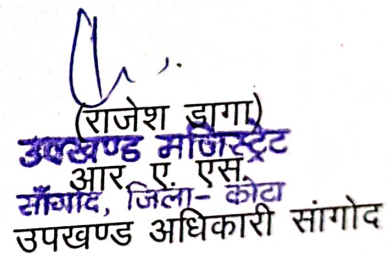 (राजेश डागा)
उपखण्ड मजिस्ट्रेट
आर. ए. एस.
साँगोद, जिला- कोटा
उपखण्ड अधिकारी सांगोद